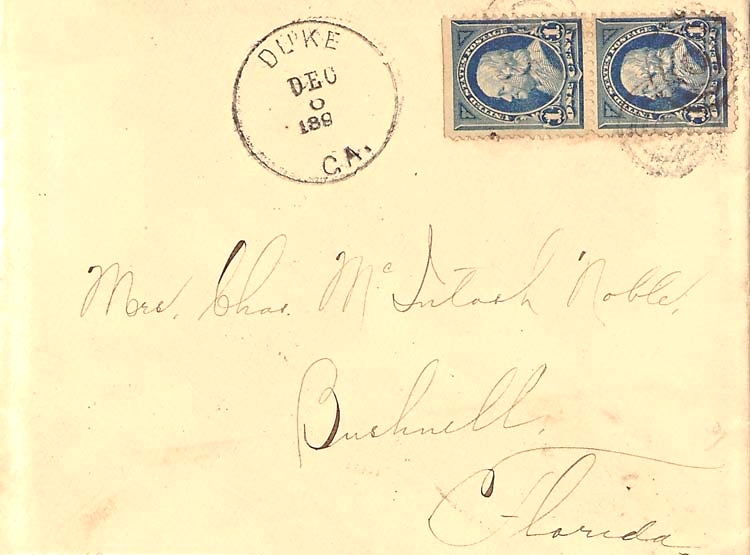 DUKE
DEC
6
189
CA.
UNITED STATES POSTAGE
1
ONE CENT
1
UNITED STATES POSTAGE
1
ONE CENT
1
Mrs. Chas. McIntosh Noble,
Bushnell,
Florida